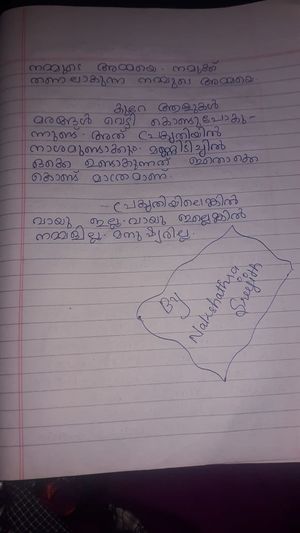 നമ്മുടെ അമ്മയെ. നമുക്ക്
തണലാകുന്ന നമ്മുടെ അമ്മയെ.
കുറെ ആളുകൾ
മരങ്ങൾ വെട്ടി കൊണ്ടുപോകു-
ന്നുണ്ട്. അത് പ്രകൃതിയിൻ
നാശമുണ്ടാക്കും. മണ്ണിടിച്ചിൽ
ഒക്കെ ഉണ്ടാകുന്നത് ഇതൊക്കെ
കൊണ്ട് മാത്രമാണ്.
- പ്രകൃതിയിലെങ്കിൽ
വായു ഇല്ല. വായു ഇല്ലെങ്കിൽ
നമ്മളില്ല. മനുഷ്യരില്ല.
By
Nakshathra
Sreejith